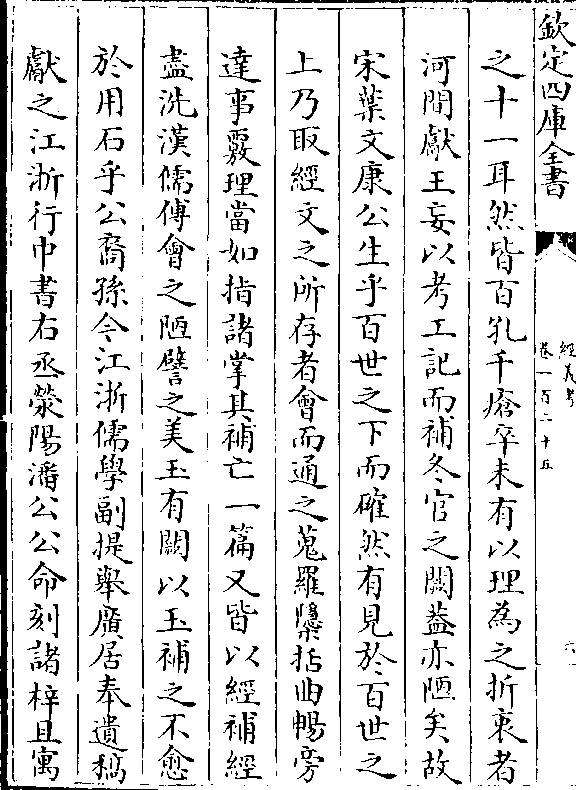 欽定四庫全書
經義考
卷一百二十五
六
之十一耳然皆百孔千瘡卒未有以理為之折衷者
河間獻王妄以考工記而補冬官之闕葢亦陋矣故
宋葉文康公生乎百世之下而確然有見於百世之
上乃取經文之所存者會而通之蒐羅檃括曲暢旁
達事覈理當如指諸掌其補亡一篇又皆以經補經
盡洗漢儒傅會之陋譬之美玉有闕以玉補之不愈
於用石乎公裔孫今江浙儒學副提舉廣居奉遺稿
獻之江浙行中書右丞滎陽潘公公命刻諸梓且寓